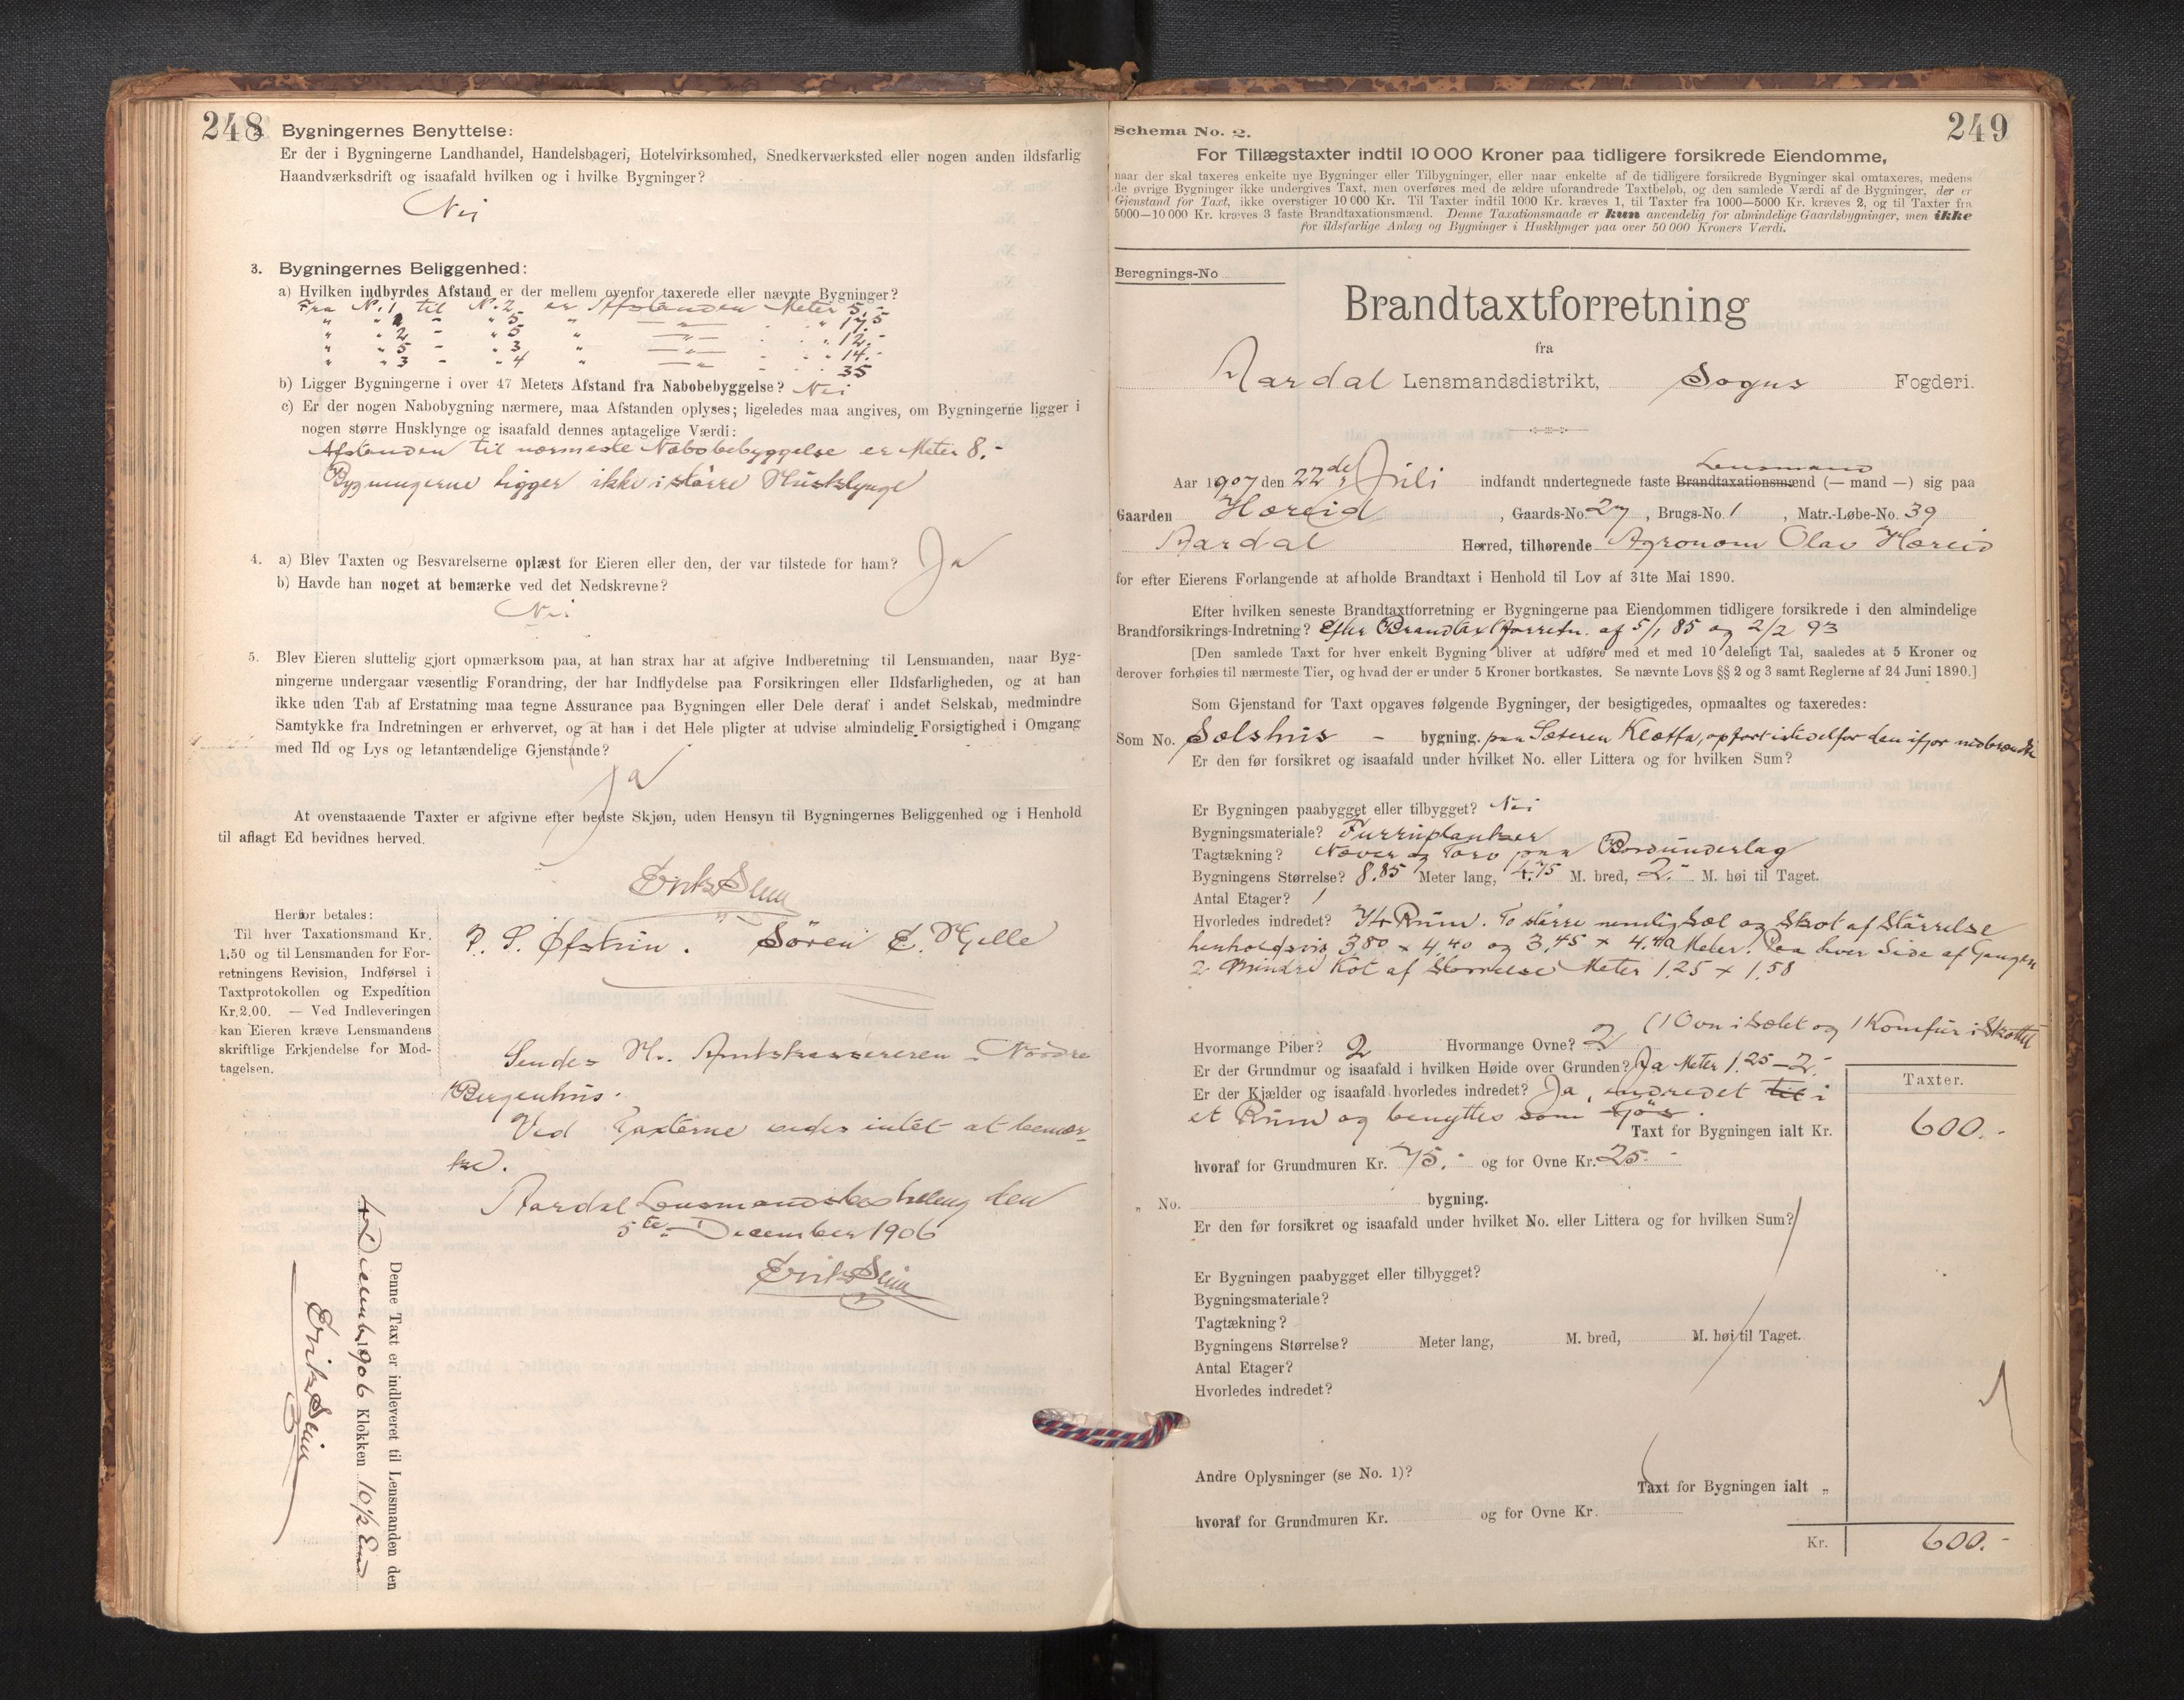 248
2. Bygningernes Benyttelse:
Er der i Bygningerne Landhandel, Handelsbageri, Hotelvirksomhed, Snedkerværksted eller nogen anden ildsfarlig
Haandværksdrift og isaafald hvilken og i hvilke Bygninger?
Nei
3. Bygningernes Beliggenhed:
a) Hvilken indbyrdes Afstand er der mellem ovenfor taxerede eller nævnte Bygninger?
Fra No. 1 til No. 2 er Afstanden Meter 5.-
" " 1 - " 5 " —"— - " 17,5
" " 2 - " 5 " —"— - " 12.-
" " 5 - " 3 " —"— - " 14.-
" " 3 - " 4 " —"— - " 35
b) Ligger Bygningerne i over 47 Meters Afstand fra Nabobebyggelse? Nei
c) Er der nogen Nabobygning nærmere, maa Afstanden oplyses; ligeledes maa angives, om Bygningerne ligger i
nogen større Husklynge og isaafald dennes antagelige Værdi:
Afstanden til nærmeste Nabobebyggelse er Meter 8.-
Bygningerne ligger ikke i større Husklynge
4. a) Blev Taxten og Besvarelserne oplæst for Eieren eller den, der var tilstede for ham? Ja
b) Havde han noget at bemærke ved det Nedskrevne?
Nei
5. Blev Eieren sluttelig gjort opmærksom paa, at han strax har at afgive Indberetning til Lensmanden, naar Byg-
ningerne undergaar væsentlig Forandring, der har Indflydelse paa Forsikringen eller Ildsfarligheden, og at han
ikke uden Tab af Erstatning maa tegne Assurance paa Bygningen eller Dele deraf i andet Selskab, medmindre
Samtykke fra Indretningen er erhvervet, og at han i det Hele pligter at udvise almindelig Forsigtighed i Omgang
med Ild og Lys og letantændelige Gjenstande?
Ja
At ovenstaaende Taxter er afgivne efter bedste Skjøn, uden Hensyn til Bygningernes Beliggenhed og i Henhold
til aflagt Ed bevidnes herved.
Erik Slin
P. S. Øfstun. Søren E. Hjelle
Herfor betales:
Til hver Taxationsmand Kr.
1.50 og til Lensmanden for For-
retningens Revision, Indførsel i
Taxtprotokollen og Expedition
Kr. 2.00. — Ved Indleveringen
kan Eieren kræve Lensmandens
skriftlige Erkjendelse for Mod-
tagelsen.
Sendes Hr. Amtskassereren i Nordre
Bergenhus.
Ved Taxterne vides intet at bemær-
ke.
Aardal Lensmandsbestilling den
5te December 1906
Erik Slin
Denne Taxt er indleveret til Lensmanden den
4 Decemb. 1906 Klokken 10½ Em
Erik Slin
249
Schema No. 2.
For Tillægstaxter indtil 10 000 Kroner paa tidligere forsikrede Eiendomme,
naar der skal taxeres enkelte nye Bygninger eller Tilbygninger, eller naar enkelte af de tidligere forsikrede Bygninger skal omtaxeres, medens
de øvrige Bygninger ikke undergives Taxt, men overføres med de ældre uforandrede Taxtbeløb, og den samlede Værdi af de Bygninger, der er
Gjenstand for Taxt, ikke overstiger 10 000 Kr. Til Taxter indtil 1000 Kr. kræves 1, til Taxter fra 1000—5000 Kr. kræves 2, og til Taxter fra
5000—10 000 Kr. kræves 3 faste Brandtaxationsmænd. Denne Taxationsmaade er kun anvendelig for almindelige Gaardsbygninger, men ikke
for ildsfarlige Anlæg og Bygninger i Husklynger paa over 50 000 Kroners Værdi.
Beregnings-No
Brandtaxtforretning
fra
Aardal Lensmandsdistrikt, Sogns Fogderi.
Lensmand
Aar 1907 den 22de Juli indfandt undertegnede faste Brandtaxationsmænd (— mand —) sig paa
Gaarden Hæreid, Gaards-No. 27, Brugs-No. 1, Matr.-Løbe-No. 39
Aardal Herred, tilhørende Agronom Olav Hæreid
for efter Eierens Forlangende at afholde Brandtaxt i Henhold til Lov af 31te Mai 1890.
Efter hvilken seneste Brandtaxtforretning er Bygningerne paa Eiendommen tidligere forsikrede i den almindelige
Brandforsikrings-Indretning? Efter Brandtaxtforretn. af 5/1 85 og 2/2 93
[Den samlede Taxt for hver enkelt Bygning bliver at udføre med et med 10 deleligt Tal, saaledes at 5 Kroner og
derover forhøies til nærmeste Tier, og hvad der er under 5 Kroner bortkastes. Se nævnte Lovs §§ 2 og 3 samt Reglerne af 24 Juni 1890.]
Som Gjenstand for Taxt opgaves følgende Bygninger, der besigtigedes, opmaaltes og taxeredes:
Som No. Sælshus - bygning. paa Sæteren Klætta, opført istedetfor den ifjor nedbrændte
Er den før forsikret og isaafald under hvilket No. eller Littera og for hvilken Sum?
Er Bygningen paabygget eller tilbygget? Nei
Bygningsmateriale? Furruplanker
Tagtækning? Næver og Torv paa Bordunderlag
Bygningens Størrelse? 8.85 Meter lang, 4.75 M. bred, 2.- M. høi til Taget.
Antal Etager? 1
Hvorledes indredet? I 4 Rum. To større nemlig Sæl og Skot af Størrelse
henholdsvis 3.80 x 4.40 og 3.45 x 4.40 Meter. Paa hver Side af Gangen
2 Mindre Kot af Størrelse Meter 1.25 x 1.58
(1 Ovn i Sælet og 1 Komfur i Skottet
Hvormange Piber? 2 Hvormange Ovne? 2
Er der Grundmur og isaafald i hvilken Høide over Grunden? Ja Meter 1.25 - 2.-
Er der Kjælder og isaafald hvorledes indredet? Ja, indredet til i
et Rum og benyttes som Fjøs.
Taxter.
Taxt for Bygningen ialt Kr. 600.-
hvoraf for Grundmuren Kr. 75.- og for Ovne Kr. 25.-
" No. bygning.
Er den før forsikret og isaafald under hvilket No. eller Littera og for hvilken Sum?
Er Bygningen paabygget eller tilbygget?
Bygningsmateriale?
Tagtækning?
Bygningens Størrelse? Meter lang, M. bred, M. høi til Taget.
Antal Etager?
Hvorledes indredet?
Andre Oplysninger (se No. 1)?
Taxt for Bygningen ialt "
hvoraf for Grundmuren Kr. og for Ovne Kr.
Kr. 600.-